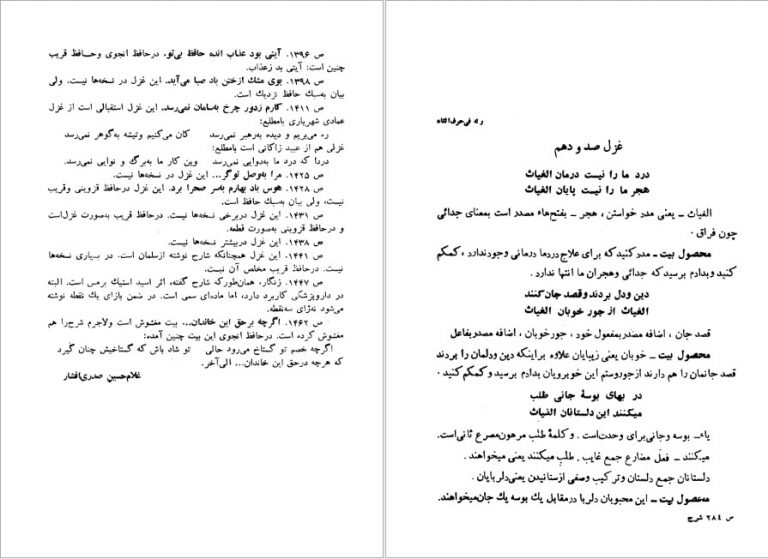 وله فی حرف الثاء
غزل صد و دهم
درد ما را نیست درمان الغیاث
هجر ما را نیست پایان الغیاث
الغیاث ـ یعنی مدد خواستن، هجر ـ بفتح‌هاء مصدر است بمعنای جدائی
چون فراق .
محصول بیت ـ مدد کنید که برای علاج درد ما درمانی وجود ندارد ، کمکم
کنید و بدادم برسید که جدائی و هجران ما انتها ندارد .
دین ودل بردند و قصد جان کنند
الغیاث از جور خوبان الغیاث
قصد جان ، اضافه مصدر بمفعول خود ، جور خوبان ، اضافه مصدر بفاعل
محصول بیت ـ خوبان یعنی زیبایان علاوه براینکه دین ودلمان را بردند
قصد جانمان را هم دارند ازجور وستم این خوبرویان بدادم برسید و کمکم کنید .
در بهای بوسهٔ جانی طلب
میکنند این دلستانان الغیاث
یاء ـ بوسه وجانی برای وحدت است . و کلمهٔ طلب مرهون مصرع ثانی است .
میکنند ـ فعل مضارع جمع غایب . طلب میکنند یعنی میخواهند .
دلستانان جمع دلستان وترکیب وصفی ازستانیدن یعنی دلربایان .
محصول بیت ـ این محبوبان دلربا درمقابل یك بوسه یك جان میخواهند .
ص ۲۸٤ شرح
ص ۱۳۹۶. آیتی بود عذاب انده حافظ بی‌تو. درحافظ انجوی وحـافظ قریب
چنین است: آیتی بد زعذاب.
ص ۱۳۹۸. بوی مشك ازختن باد صبا می‌آید. این غزل در نسخه‌ها نیست. ولی
بیان به‌سبك حافظ نزدیك است.
ص ۱۴۱۱. کارم زدور چرخ به‌سامان نمی‌رسد. این غزل استقبالی است از غزل
عمادی شهریاری بامطلع:
ره می‌بریم و دیده به‌رهبر نمی‌رسد کان می‌کنیم وتیشه به‌گوهر نمی‌رسد
غزلی هم از عبید زاکانی است بامطلع:
دردا که درد ما به‌دوایی نمی‌رسد وین کار ما به‌برگ و نوایی نمی‌رسد.
ص ۱۴۲۵. مرا به‌وصل توگر... این غزل در نسخه‌ها نیست.
ص ۱۴۲۸. هوس باد بهارم به‌سر صحرا برد. این غزل در حافظ قزوینی وقریب
نیست، ولی بیان به‌سبك حافظ است.
ص ۱۴۳۱. این غزل دربرخی نسخه‌ها نیست. درحافظ قریب به‌صورت غزل‌است
و درحافظ قزوینی به‌صورت قطعه.
ص ۱۴۳۸. این غزل دربیشتر نسخه‌ها نیست.
ص ۱۴۴۱. این غزل همچنانکه شارح نوشته ازسلمان است. در بسیاری نسخه‌ها
نیست. درحافظ قریب مخلص آن نیست.
ص ۱۴۴۷. زنگار، همان‌طورکه شارح گفته، اثر اسید استیك برمس است. البته
در داروپزشکی کاربرد دارد، اما ماده‌ای سمی است. در ضمن بازای یك نقطه نوشته
می‌شود نه‌ژای سه‌نقطه.
ص ۱۴۶۲. اگرچه برحق این خاندان... بیت مغشوش است ولاجرم شرح‌را هم
مغشوش کرده است. درحافظ انجوی این بیت چنین آمده:
اگرچه خصم تو گستاخ می‌رود حالی تو شاد باش که گستاخیش چنان گیرد
که هرچه درحق این خاندان... الی‌آخر.
غلام‌حسین صدری‌افشار